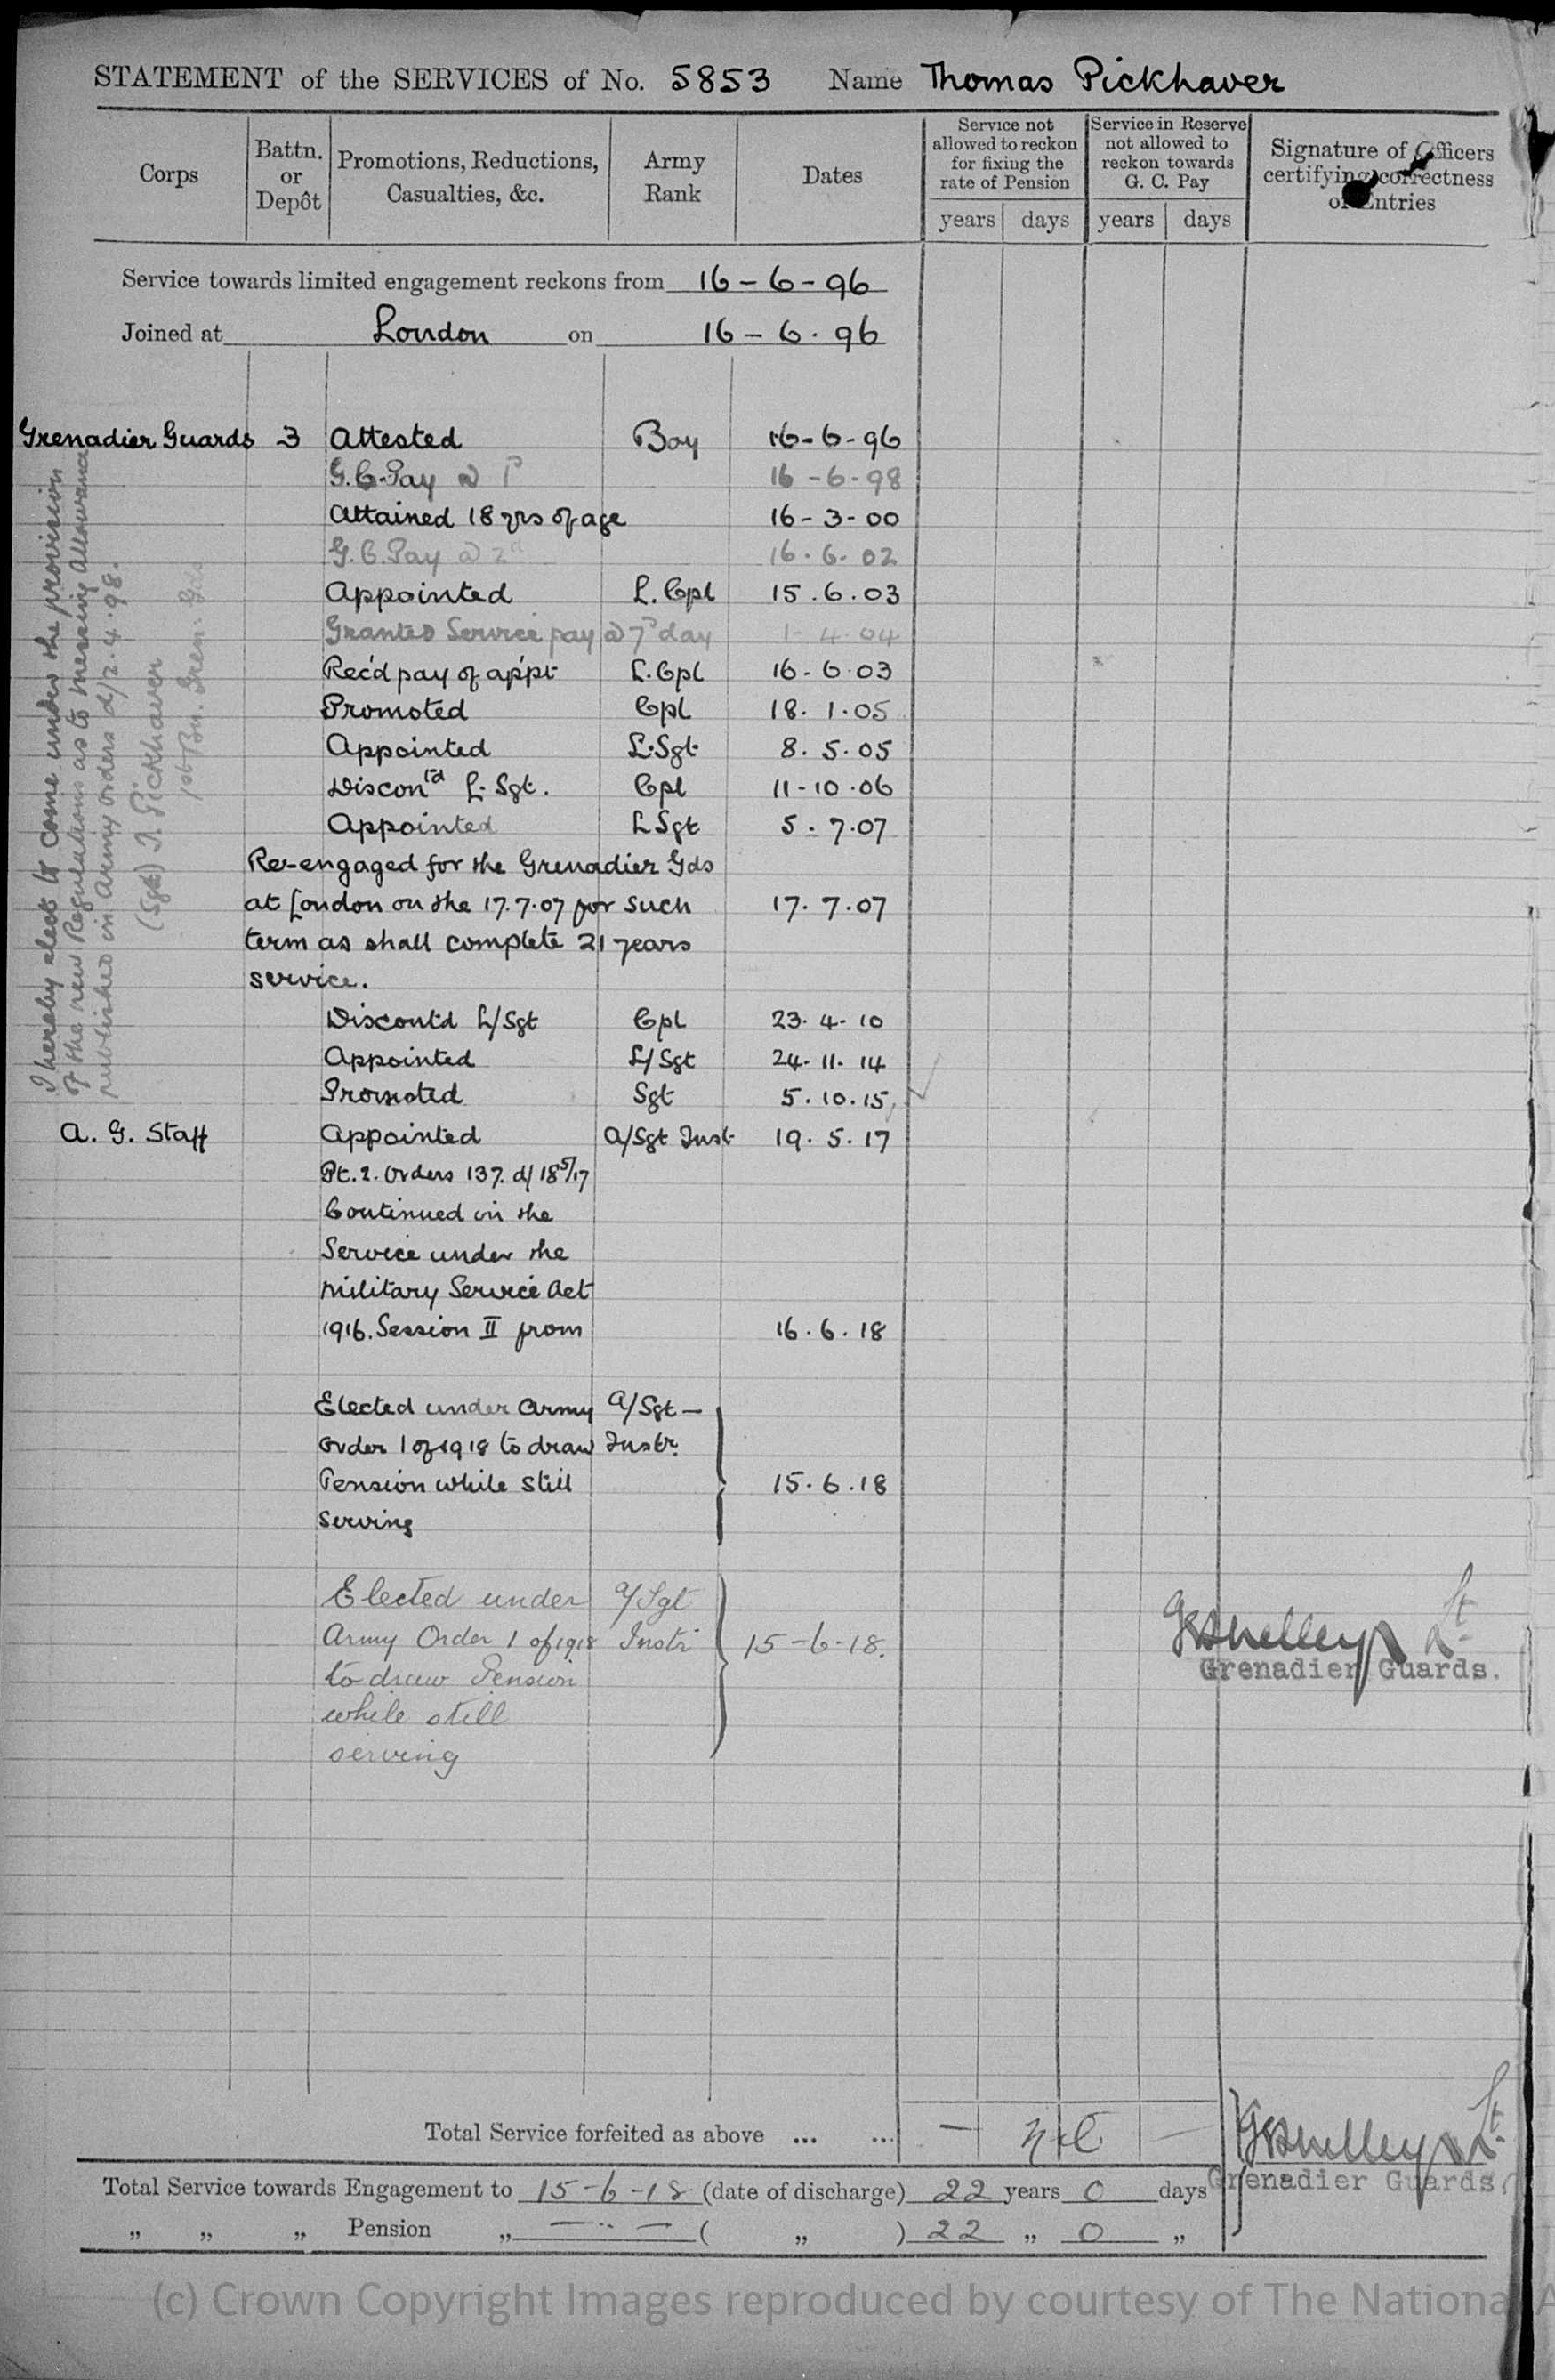 STATEMENT of the SERVICES of No. 5853 Name Thomas Pickhaver
Corps
Battn. or Depôt
Promotions, Reductions, Casualties, &c.
Army Rank
Dates
Service not allowed to reckon for fixing the rate of Pension
years days
Service in Reserve not allowed to reckon towards G. C. Pay
years days
Signature of Officers certifying correctness of Entries
Service towards limited engagement reckons from 16-6-96
Joined at London on 16-6.96
Grenadier Guards 3 Attested Boy 16-6-96
G.C.Pay @ 1d 16-6-98
Attained 18 yrs of age 16-3-00
G.C.Pay @ 2d 16.6.02
Appointed L.Cpl 15.6.03
Granted Service pay @ 7d day 1-4.04
Rec'd pay of app't L.Cpl 16-6.03
Promoted Cpl 18.1.05
Appointed L.Sgt 8.5.05
Discontd L.Sgt. Cpl 11-10.06
Appointed LSgt 5.7.07
Re-engaged for the Grenadier Gds
at London on the 17.7.07 for such 17.7.07
term as shall complete 21 years
service.
Discont'd L/Sgt Cpl 23.4.10
Appointed L/Sgt 24.11.14
Promoted Sgt 5.10.15
A. G. Staff Appointed A/Sgt Inst 19.5.17
Pt.2. Orders 137. d/ 18/5/17
Continued in the
Service under the
Military Service Act
1916. Session II from 16.6.18
Elected under Army A/Sgt -
Order 1 of 1918 to draw Instr.
Pension while still 15.6.18
serving
Elected under A/Sgt
Army Order 1 of 1918 Instr 15-6-18.
to draw Pension
while still
serving
I hereby elect to come under the provision
of the new Regulations as to messing allowance
published in Army Orders d/2.4.98.
(Sgd) T. Pickhaver
1st Bn. Gren: Gds
Shelley Lt
Grenadier Guards.
Total Service forfeited as above ... ... — Nil —
Shelley Lt
Grenadier Guards.
Total Service towards Engagement to 15-6-18 (date of discharge) 22 years 0 days
„ „ „ Pension „ — „ — ( „ ) 22 „ 0 „
(c) Crown Copyright Images reproduced by courtesy of The National A